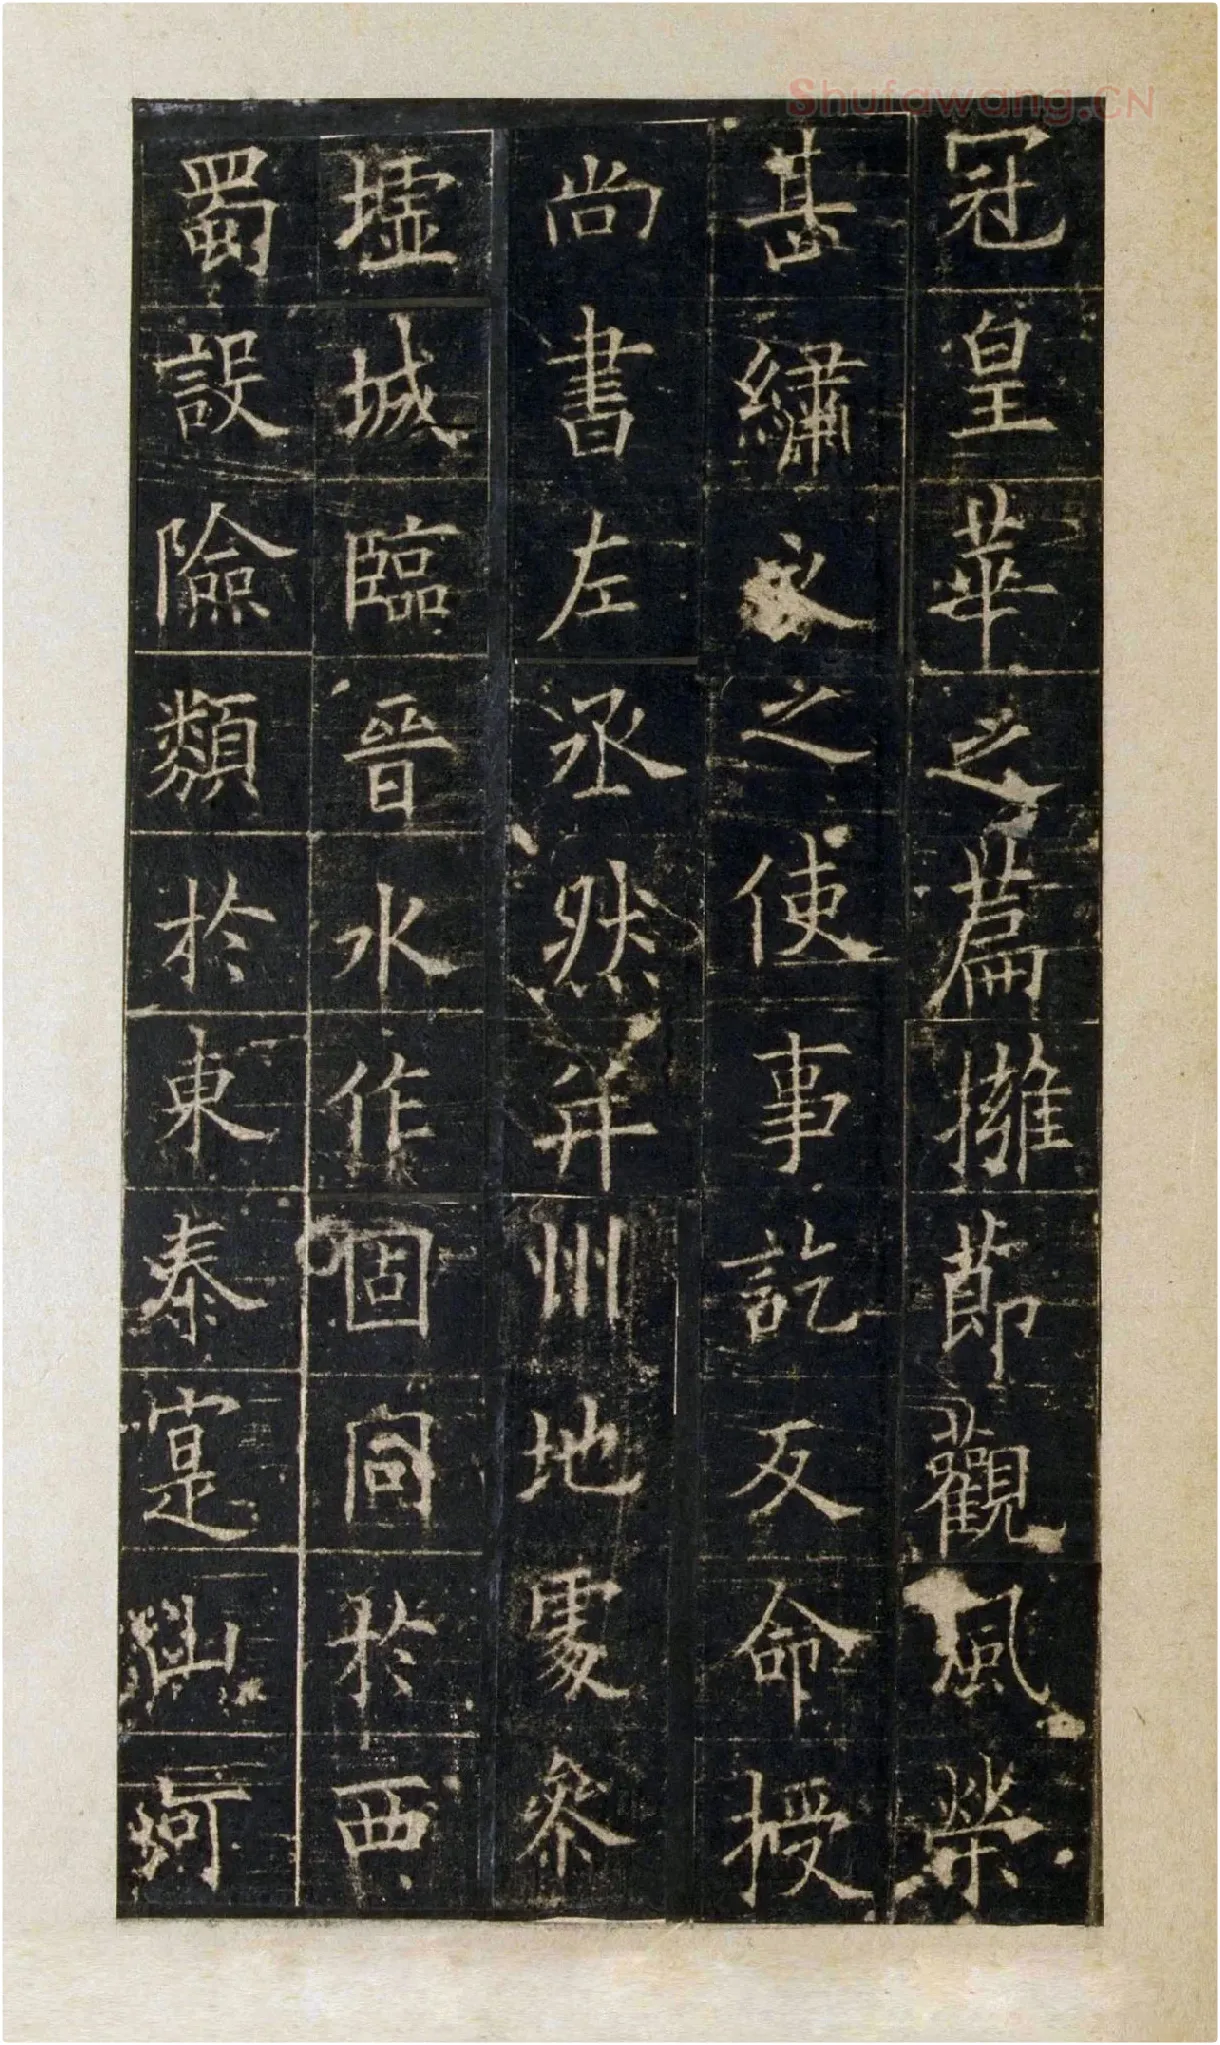 Shufawang.CN
冠皇華之篇擁節觀風榮
甚繡衣之使事訖反命授
尚書左丞然并州地處參
墟城臨晉水作固同於西
蜀設險類於東秦寔山河